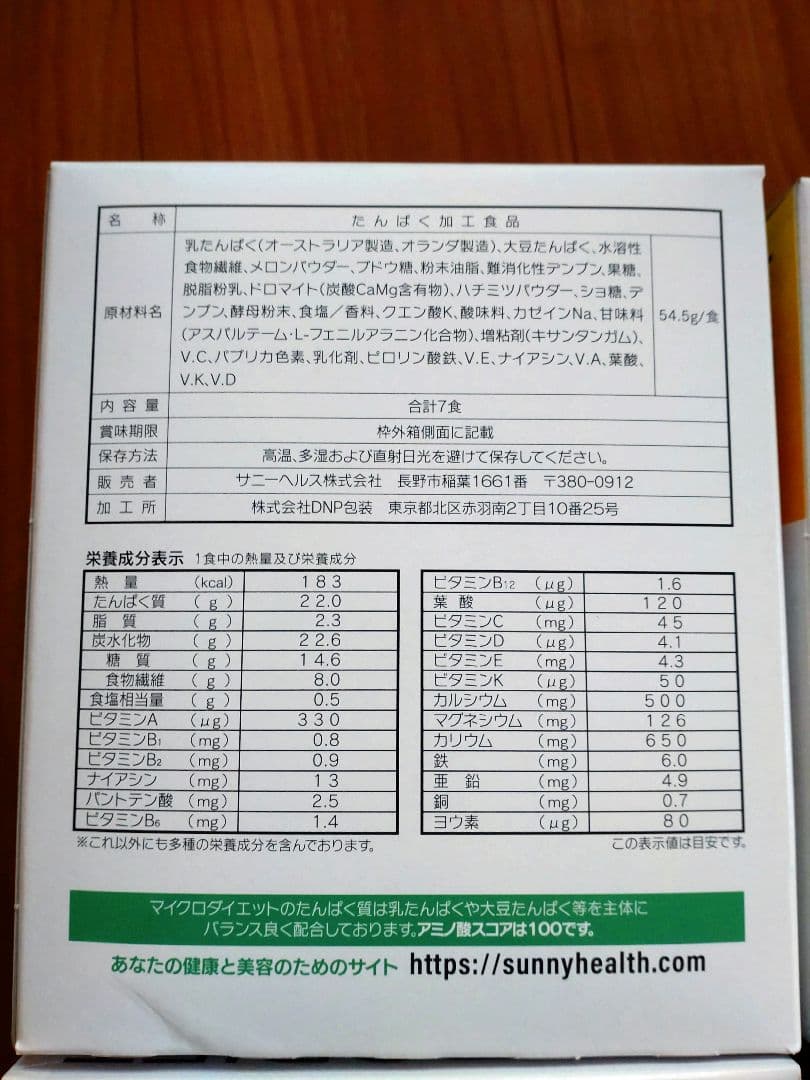 名称 たんぱく加工食品
原材料名 乳たんぱく(オーストラリア製造、オランダ製造)、大豆たんぱく、水溶性
食物繊維、メロンパウダー、ブドウ糖、粉末油脂、難消化性デンプン、果糖、
脱脂粉乳、ドロマイト(炭酸CaMg含有物)、ハチミツパウダー、ショ糖、デ
ンプン、酵母粉末、食塩/香料、クエン酸K、酸味料、カゼインNa、甘味料
(アスパルテーム・L-フェニルアラニン化合物)、増粘剤(キサンタンガム)、
V.C、パプリカ色素、乳化剤、ピロリン酸鉄、V.E、ナイアシン、V.A、葉酸、
V.K、V.D
54.5g/食
内容量 合計7食
賞味期限 枠外箱側面に記載
保存方法 高温、多湿および直射日光を避けて保存してください。
販売者 サニーヘルス株式会社 長野市稲葉1661番 〒380-0912
加工所 株式会社DNP包装 東京都北区赤羽南2丁目10番25号
栄養成分表示 1食中の熱量及び栄養成分
熱量 (kcal) 183
たんぱく質 (g) 22.0
脂質 (g) 2.3
炭水化物 (g) 22.6
糖質 (g) 14.6
食物繊維 (g) 8.0
食塩相当量 (g) 0.5
ビタミンA (μg) 330
ビタミンB1 (mg) 0.8
ビタミンB2 (mg) 0.9
ナイアシン (mg) 13
パントテン酸 (mg) 2.5
ビタミンB6 (mg) 1.4
ビタミンB12 (μg) 1.6
葉酸 (μg) 120
ビタミンC (mg) 45
ビタミンD (μg) 4.1
ビタミンE (mg) 4.3
ビタミンK (μg) 50
カルシウム (mg) 500
マグネシウム (mg) 126
カリウム (mg) 650
鉄 (mg) 6.0
亜鉛 (mg) 4.9
銅 (mg) 0.7
ヨウ素 (μg) 80
※これ以外にも多種の栄養成分を含んでおります。
この表示値は目安です。
マイクロダイエットのたんぱく質は乳たんぱくや大豆たんぱく等を主体に
バランス良く配合しております。アミノ酸スコアは100です。
あなたの健康と美容のためのサイト https://sunnyhealth.com